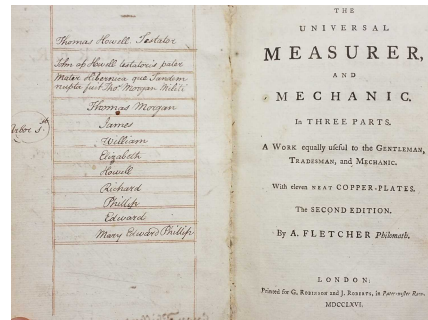 Thomas Howell Testator
John ap Howell testatoris pater
Mater Hibernica que Tandem
nupta fuit Tho. Morgan Militi
Thomas Morgan
Arbor
James
William
Elizabeth
Howell
Richard
Phillip
Edward
Mary Edward Phillip
THE
UNIVERSAL
MEASURER,
AND
MECHANIC.
In THREE PARTS.
A WORK equally useful to the GENTLEMAN,
TRADESMAN, and MECHANIC.
With eleven NEAT COPPER-PLATES.
The SECOND EDITION.
By A. FLETCHER Philomath.
LONDON:
Printed for G. ROBINSON and J. ROBERTS, in Pater-noster Row.
MDCCLXVI.